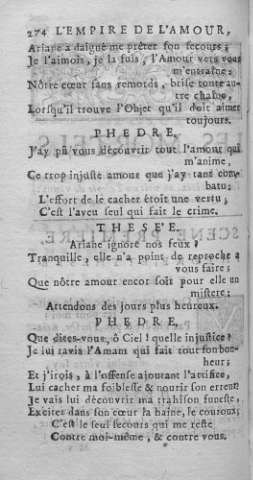 274 L'EMPIRE DE L'AMOUR,
Ariane a daigné me prêter son secours;
Je l'aimois, je la suis, l'Amour vers vous
m'entraîne;
Nôtre cœur sans remords, brise toute au-
tre chaîne,
Lorsqu'il trouve l'Objet qu'il doit aimer
toujours.
PHEDRE.
J'ay pû vous découvrir tout l'amour qui
m'anime,
Ce trop injuste amour que j'ay tant com-
batu;
L'effort de le cacher étoit une vertu,
C'est l'aveu seul qui fait le crime.
THESE'E.
Ariane ignore nos feux;
Tranquille, elle n'a point de reproche à
vous faire;
Que nôtre amour encor soit pour elle un
mistere;
Attendons des jours plus heureux.
PHEDRE.
Que dites-vous, ô Ciel! quelle injustice?
Je lui ravis l'Amant qui fait tout son bon-
heur;
Et j'irois, à l'offense ajoutant l'artifice,
Lui cacher ma foiblesse & nourir son erreur?
Je vais lui découvrir ma trahison funeste,
Exciter dans son cœur la haine, le couroux;
C'est le seul secours qui me reste
Contre moi-même, & contre vous.